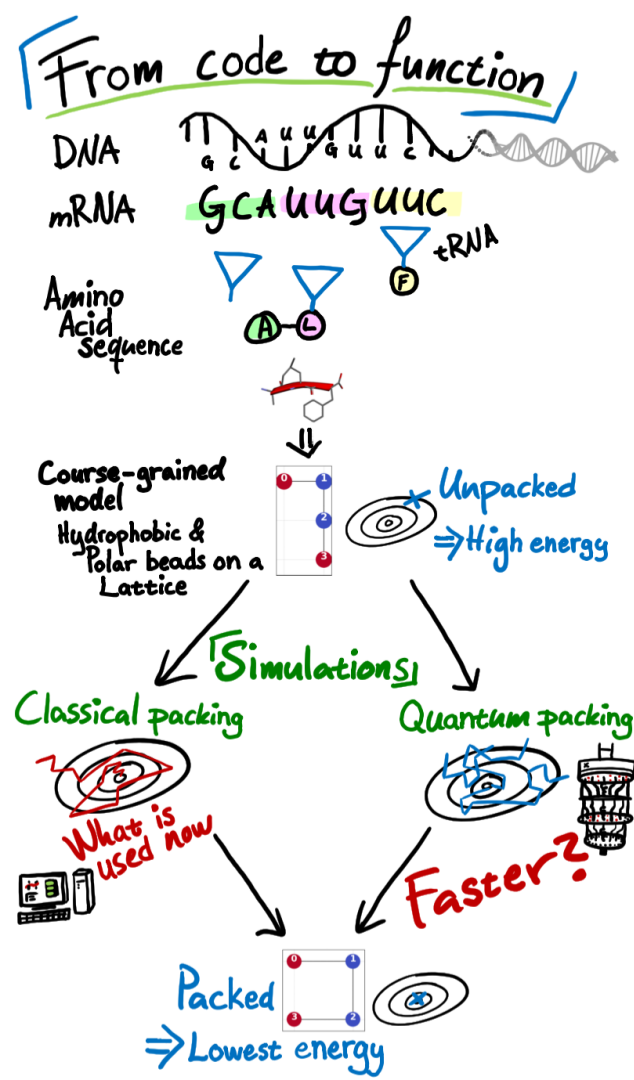 From code to function
DNA
G C A U U G U U C
mRNA
GCAUUGUUC
tRNA
F
Amino
Acid
sequence
A L
Course-grained
model
Hydrophobic &
Polar beads on a
Lattice
0 1
2
3
Unpacked
⇒ High energy
Simulations
Classical packing
Quantum packing
What is
used now
Faster?
0 1
3 2
Packed
⇒ Lowest energy